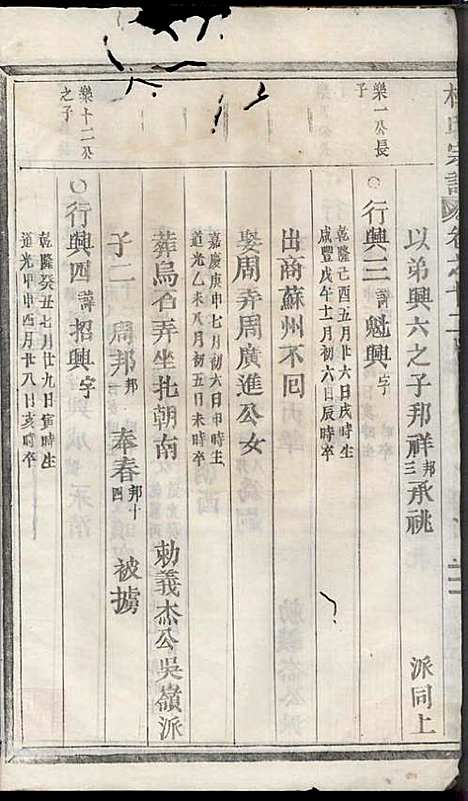 宗譜
卷之十二
以弟興六之子邦祥邦三承祧 派同上
樂一公長子
○行興三諱魁興字
乾隆己酉五月廿六日戌時生
咸豐戊午十二月初六日辰時卒
出商蘇州不回
娶周弄周廣進公女
嘉慶庚申七月初六日申時生
道光乙未八月初五日未時卒
葬烏石弄坐北朝南 勅義杰公吳嶺派
子二 周邦邦 奉春邦十四 被擄
樂十二公之子
○行興四諱招興字
乾隆癸丑七月廿九日寅時生
道光甲申四月廿八日亥時卒